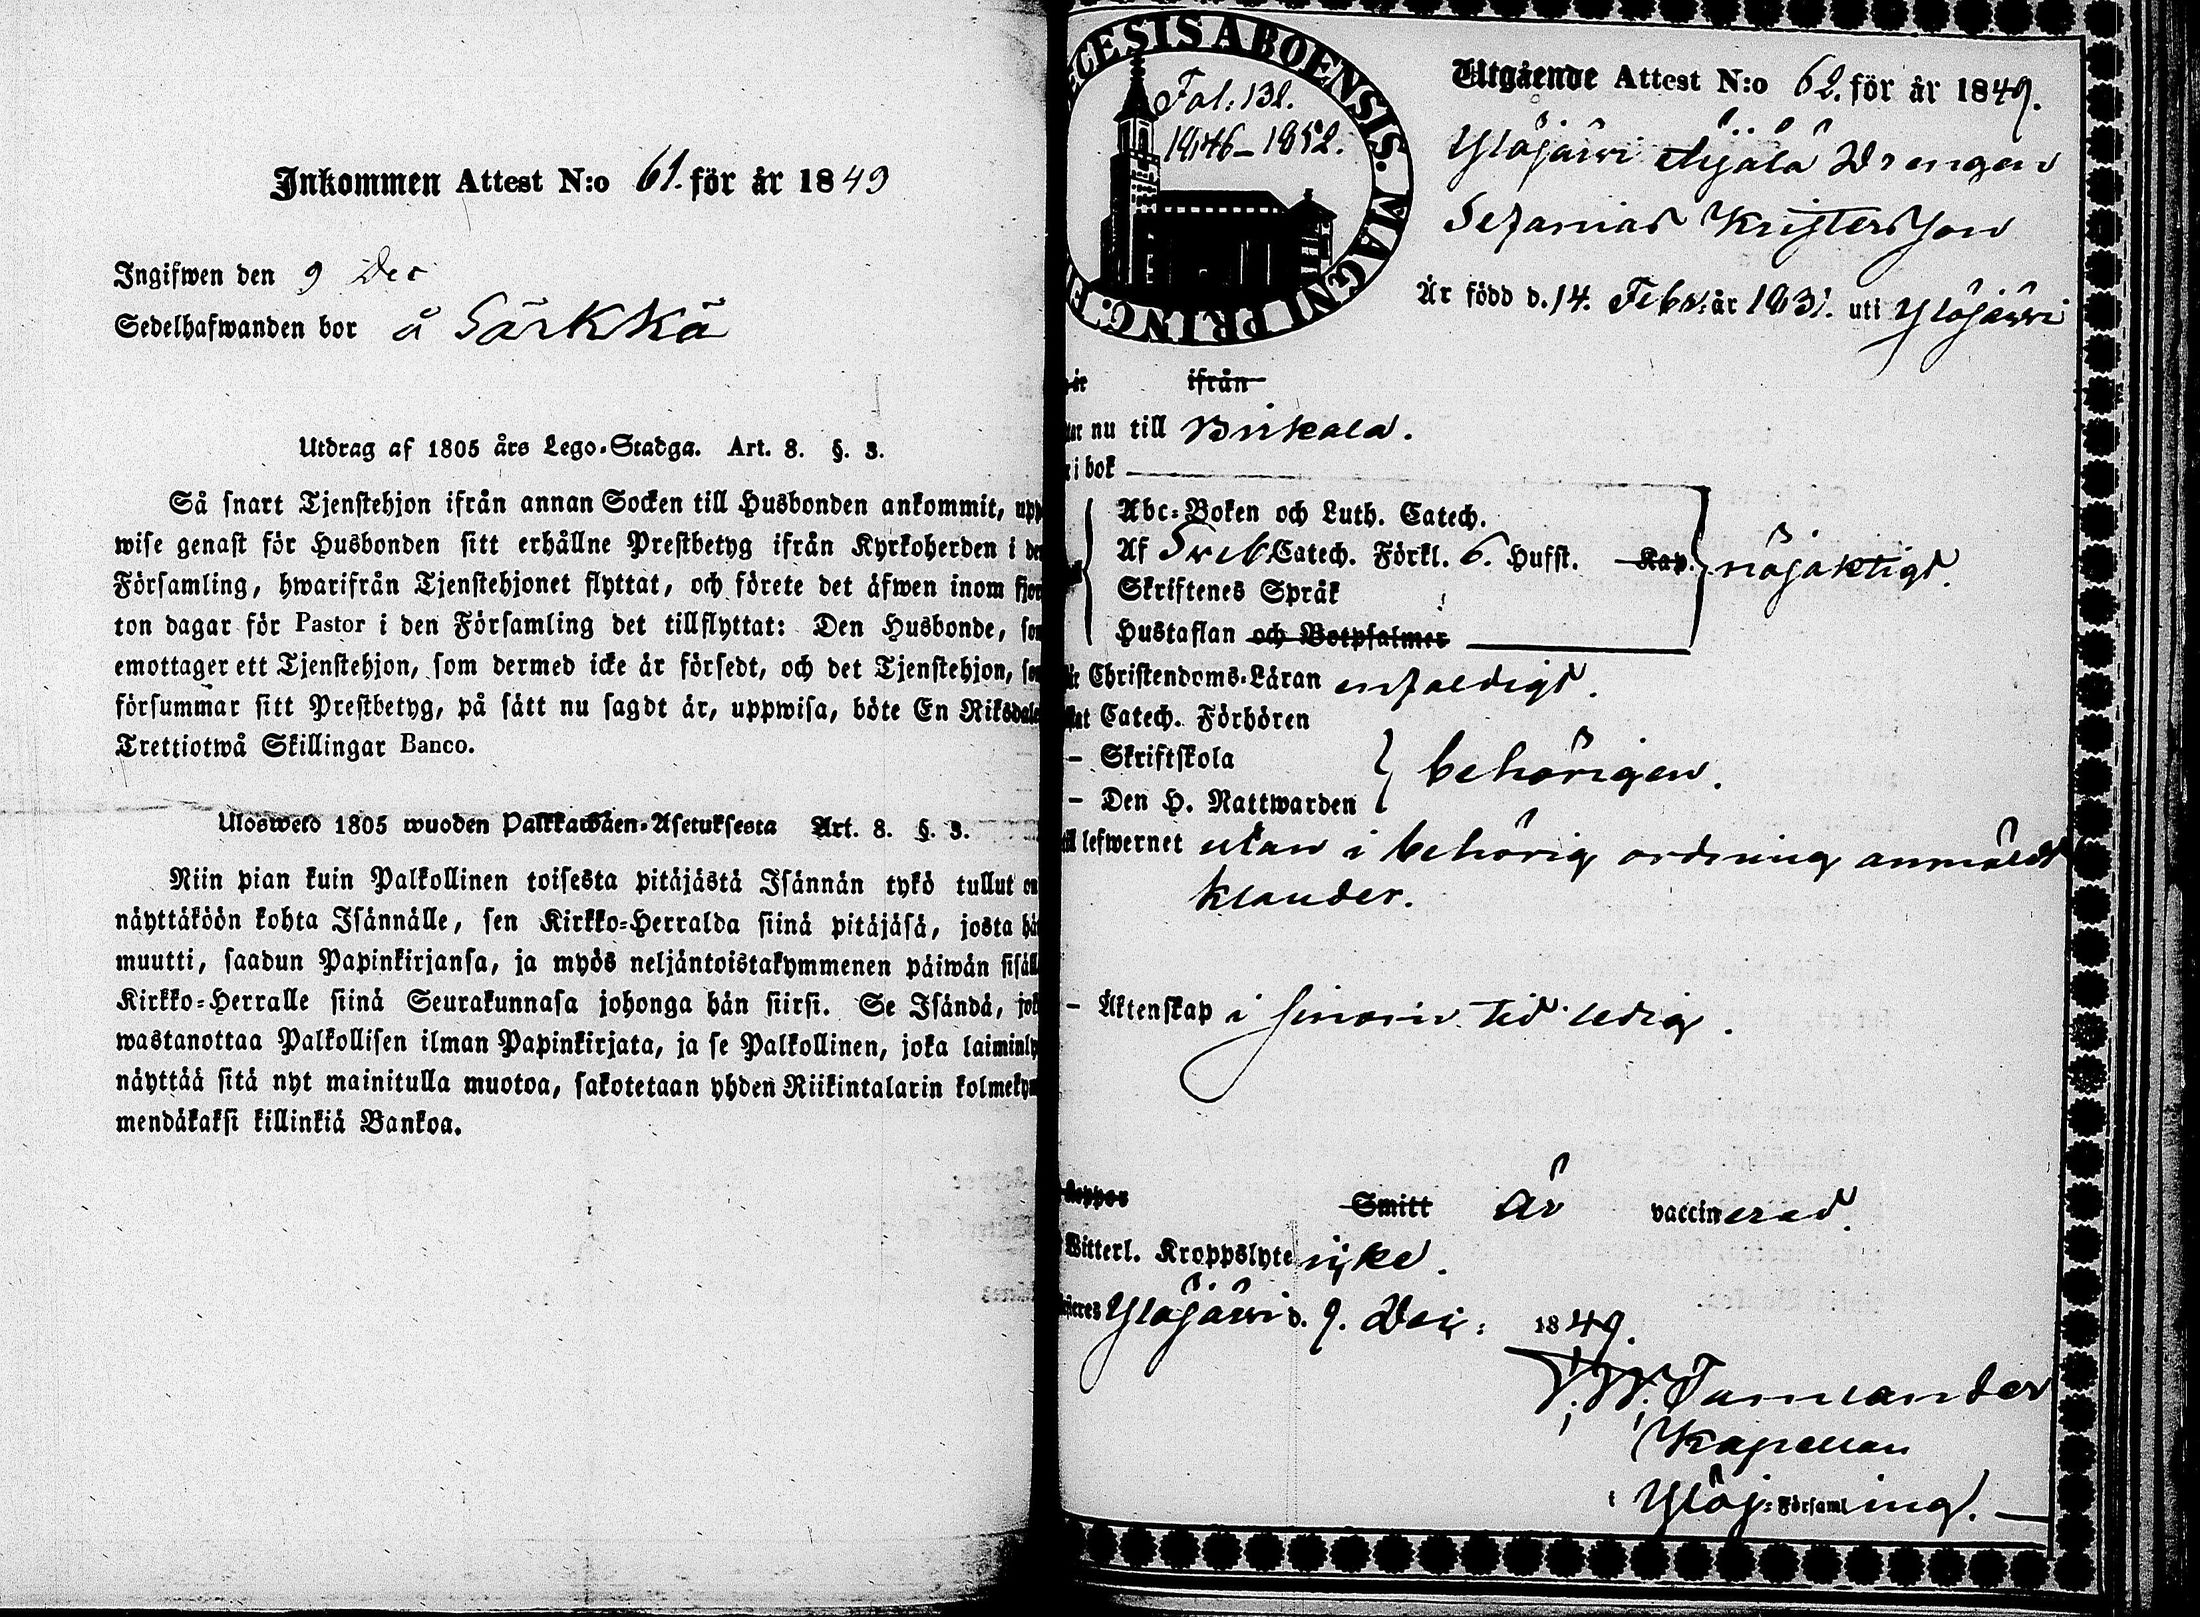 Inkommen Attest N:o 61. för år 1849
Ingifwen den 9 Dec
Sedelhafwanden bor å Särkkä
Utdrag af 1805 års Lego-Stadga. Art. 8. §. 3.
Så snart Tjenstehjon ifrån annan Socken till Husbonden ankommit, upp
wise genast för Husbonden sitt erhållne Prestbetyg ifrån Kyrkoherden i de
Församling, hwarifrån Tjenstehjonet flyttat, och förete det äfwen inom fjor
ton dagar för Pastor i den Församling det tillflyttat: Den Husbonde, so
emottager ett Tjenstehjon, som dermed icke är försedt, och det Tjenstehjon, so
försummar sitt Prestbetyg, på sätt nu sagdt är, uppwisa, böte En Riksdale
Trettiotwå Skillingar Banco.
Uloswetd 1805 wuoden Palkkawäen-Asetuksesta Art. 8. §. 3.
Niin pian kuin Palkollinen toisesta pitäjästä Isännän tykö tullut on
näyttäköön kohta Isännälle, sen Kirkko-Herralda siinä pitäjäsä, josta hän
muutti, saadun Papinkirjansa, ja myös neljäntoistakymmenen päiwän sisäll
Kirkko-Herralle siinä Seurakunnasa johonga hän siirsi. Se Isändä, jok
wastanottaa Palkollisen ilman Papinkirjata, ja se Palkollinen, joka laiminly
näyttää sitä nyt mainitulla muotoa, sakotetaan yhden Riikintalarin kolmekym
mendäkaksi killinkiä Bankoa.
ECESIS ABOENSIS. MAGNI PRINC. F
Fol: 131.
1846-1852.
Utgående Attest N:o 62. för år 1849.
Ylöjärvi Äijälä Drengen
Sefanias Kristersson
Är född d. 14. Febr. år 1831. uti Ylöjärvi
ifrån
nu till Birkala.
i bok
Abc-Boken och Luth. Catech.
Af Sveb. Catech. Förkl. 6. Hufst. Kap. nöjaktigt.
Skriftenes Språk
Hustaflan och Botpsalmer
Christendoms-Läran enfaldigt.
Catech. Förhören
- Skriftskola behörigen.
- Den H. Nattwarden
lefwernet utan i behörig ordning anmäldt
klander.
- Äktenskap i sinom tid ledig.
Koppor Smitt är vaccinerad.
Witterl. Kroppslyte icke.
Ylöjärvi d. 9. Dec: 1849.
Kapellan
i Ylöj: Församling.